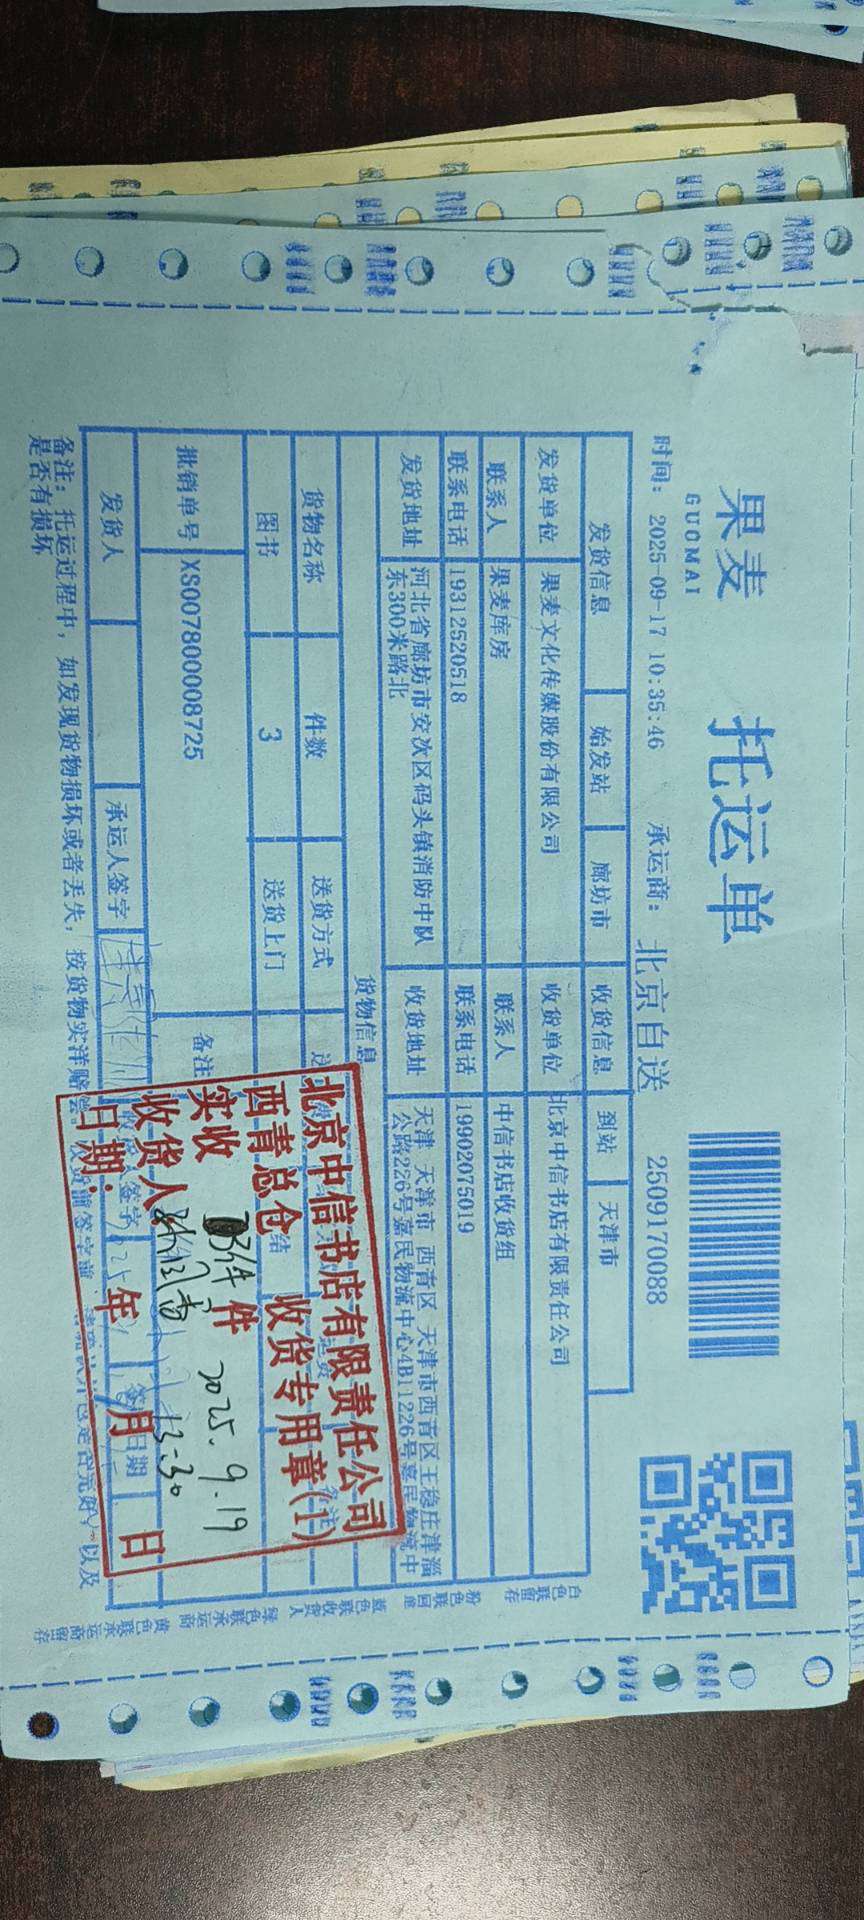 果麦 托运单
GUOMAI
时间: 2025-09-17 10:35:46 承运商: 北京自送 2509170088
发货信息 始发站 廊坊市 收货信息 到站 天津市
发货单位 果麦文化传媒股份有限公司 收货单位 北京中信书店有限责任公司
联系人 果麦库房 联系人 中信书店收货组
联系电话 19312520518 联系电话 19902075019
发货地址 河北省廊坊市安次区码头镇消防中队 收货地址 天津 天津市 西青区 天津市西青区王稳庄津淄
东300米路北 公路226号嘉民物流中心4B11226号嘉民物流中
货物信息
货物名称 件数 送货方式
图书 3 送货上门
批销单号 XS007800008725 备注
发货人 承运人签字
备注: 托运过程中, 如发现货物损坏或者丢失, 按货物实洋赔偿。 以及
是否有损坏
北京中信书店有限责任公司
西青总仓 收货专用章(1)
实收 3件 件 2025.9.19
收货人: 13:30
日期: 年 月 日
白色联留存 粉色联回单 蓝色联收货人 绿色联承运商 黄色联承运商留存